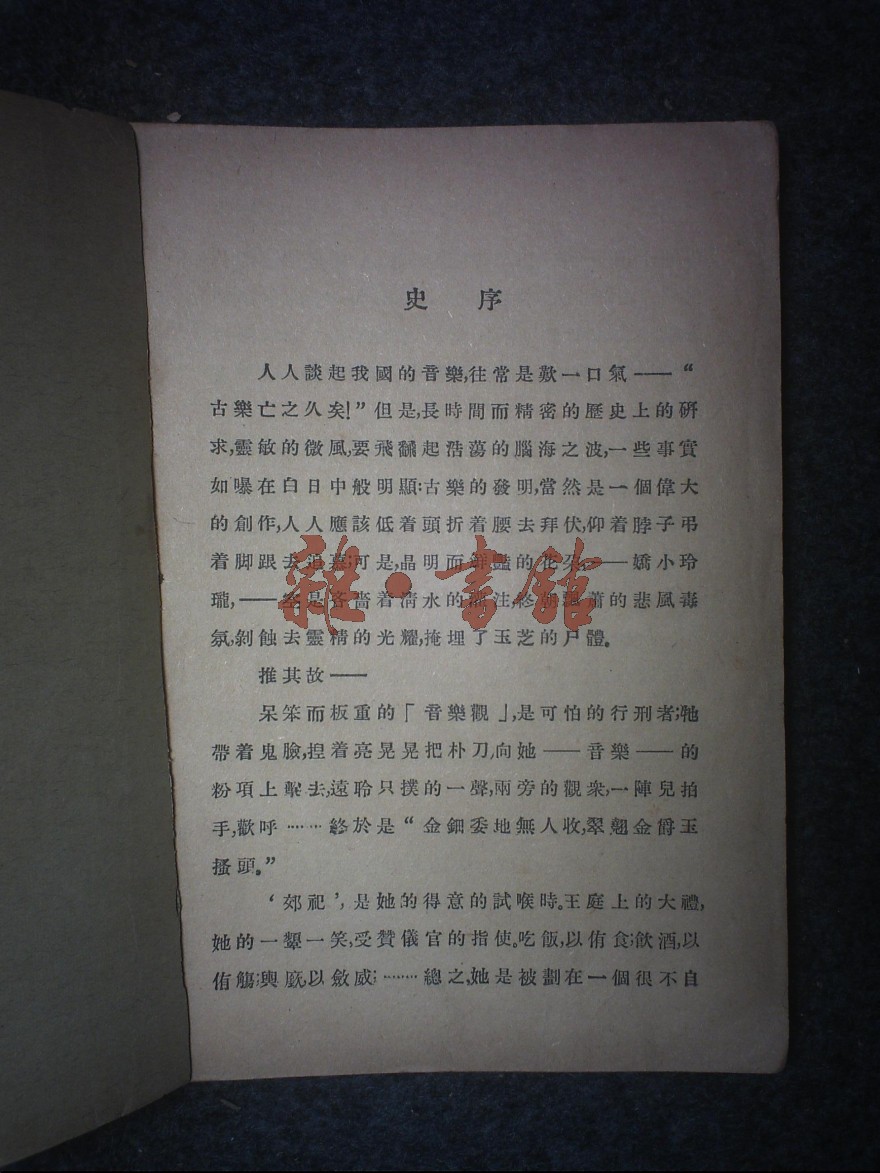 史 序
人人談起我國的音樂,往常是歎一口氣——“
古樂亡之久矣!”但是,長時間而精密的歷史上的研
求,靈敏的微風,要飛飜起浩蕩的腦海之波,一些事實
如曝在白日中般明顯:古樂的發明,當然是一個偉大
的創作,人人應該低着頭折着腰去拜伏,仰着脖子弔
着脚跟去追慕;可是,晶明而鮮豔的花朶,——嬌小玲
瓏,——是吝嗇着清水的注,蕭的悲風毒
氛,剝蝕去靈精的光耀,掩埋了玉芝的尸體。
推其故——
呆笨而板重的「音樂觀」,是可怕的行刑者;牠
帶着鬼臉,揑着亮晃晃把朴刀,向她——音樂——的
粉項上去,遠聆只撲的一聲,兩旁的觀衆,一陣兒拍
手,歡呼……終於是“金鈿委地無人收,翠翹金爵玉
搔頭。”
‘郊祀’,是她的得意的試喉時。王庭上的大禮,
她的一顰一笑,受贊儀官的指使。吃飯,以侑食;飲酒,以
侑觴;輿,以斂威;………總之,她是被劃在一個很不自
雜·書舘